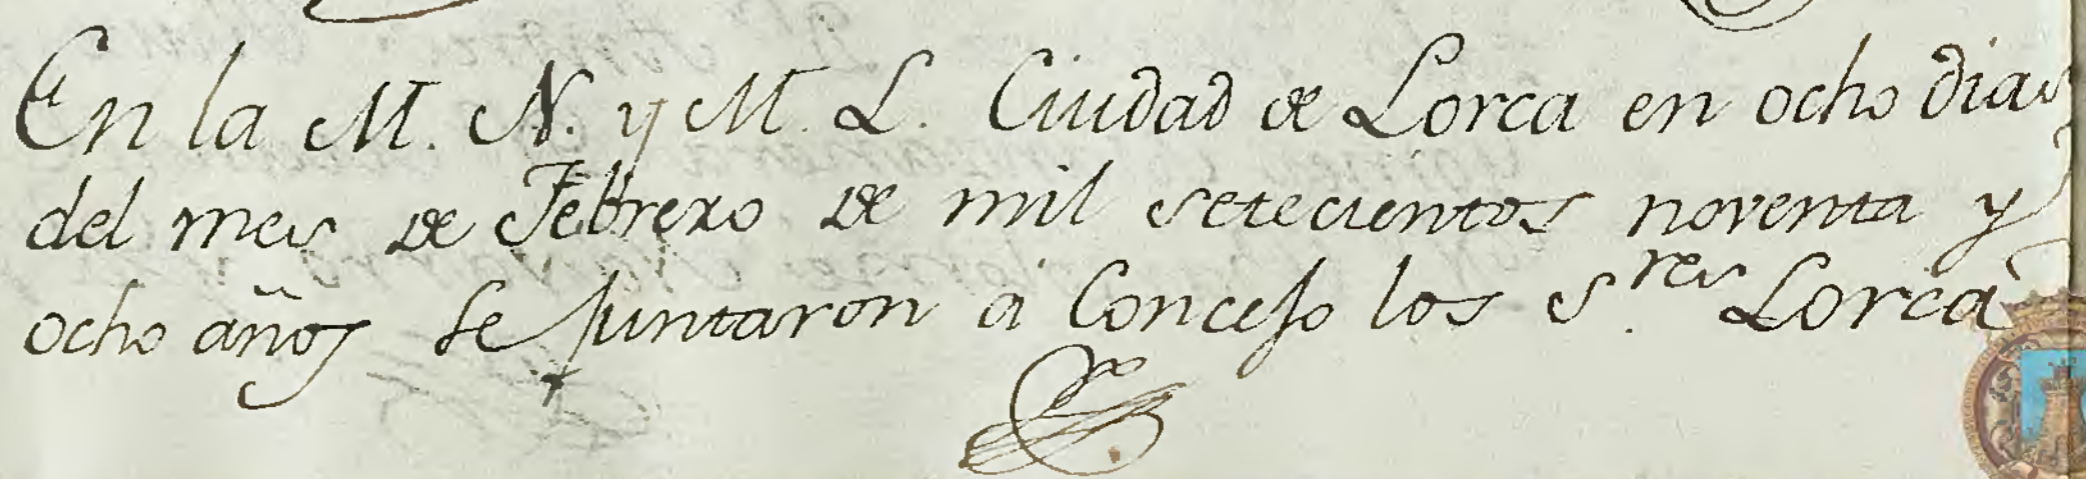 En la M. N. y M. L. Ciudad de Lorca en ocho dias
del mes de Febrero de mil setecientos noventa y
ocho años se juntaron á Concejo los S.res Lorca